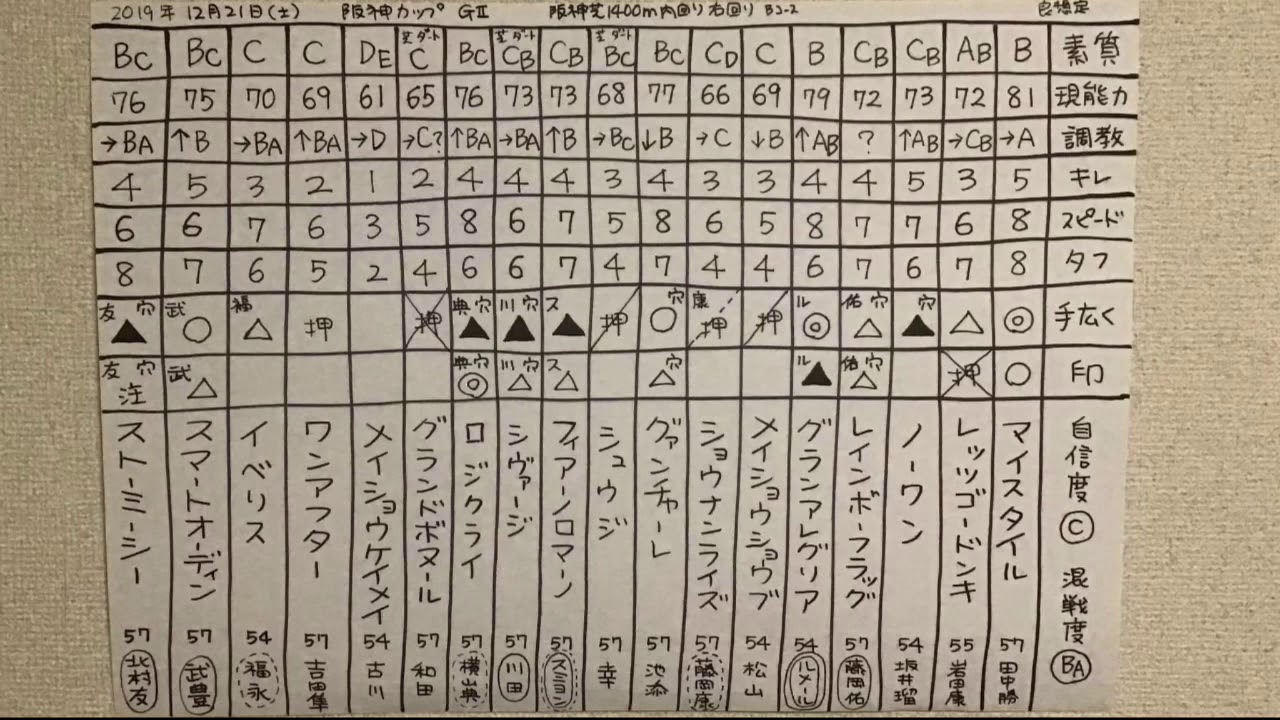 2019年 12月21日(土) 阪神カップ GⅡ 阪神芝1400m内回り右回り Bコ-2 良想定
BC BC C C DE 芝ダート C BC 芝ダート CB CB 芝ダート BC BC CD C B CB CB AB B 素質
76 75 70 69 61 65 76 73 73 68 77 66 69 79 72 73 72 81 現能力
→BA ↑B →BA ↑BA →D →C? ↑BA →BA ↑B →BC ↓B →C ↓B ↑AB ? ↑AB →CB →A 調教
4 5 3 2 1 2 4 4 4 3 4 3 3 4 4 5 3 5 キレ
6 6 7 6 3 5 8 6 7 5 8 6 5 8 7 7 6 8 スピード
8 7 6 5 2 4 6 6 7 4 7 4 4 6 7 6 7 8 タフ
友穴▲ 武○ 福△ 押 押 典穴▲ 川穴▲ ス▲ 押 穴○ 康押 押 ル◎ 佑穴△ 穴▲ △ ◎ 手広く
友穴注 武△ 典穴◎ 川穴△ ス△ 穴△ ル▲ 佑穴△ 押 ○ 印
自信度 C 混戦度 BA
マイスタイル 57 田中勝
レッツゴードンキ 55 岩田康
ノーワン 54 坂井瑠
レインボーフラッグ 57 藤岡佑
グランアレグリア 54 ルメール
メイショウショウブ 54 松山
ショウナンライズ 57 藤岡康
グァンチャーレ 57 池添
シュウジ 57 幸
フィアーノロマーノ 57 スミヨン
シヴァージ 57 川田
ロジクライ 57 横山典
グランドボヌール 57 和田
メイショウケイメイ 54 古川
ワンアフター 57 吉田隼
イベリス 54 福永
スマートオーディン 57 武豊
ストーミーシー 57 北村友